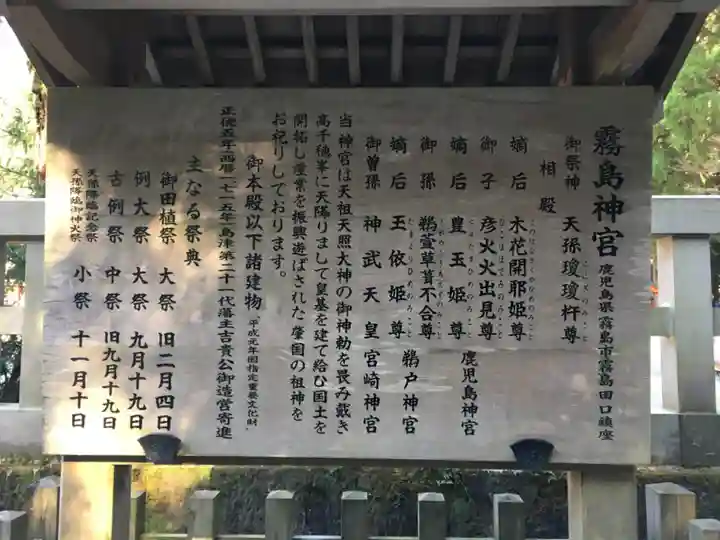 霧島神宮 鹿児島県霧島市霧島田口鎮座
御祭神 天孫瓊瓊杵尊
相殿
嫡后 木花開耶姫尊
御子 彦火火出見尊
嫡后 豊玉姫尊 鹿児島神宮
御孫 鵜萱草葺不合尊 鵜戸神宮
嫡后 玉依姫尊
御曽孫 神武天皇 宮崎神宮
当神宮は天祖天照大神の御神勅を畏み戴き
高千穂峯に天降りまして皇基を建て給ひ国土を
開拓し産業を振興遊ばされた肇国の祖神を
お祀りしております。
御本殿以下諸建物(平成元年国指定重要文化財)
正徳五年西暦一七一五年島津第二十一代藩主吉貴公御造営寄進
主なる祭典
御田植祭 大祭 旧二月四日
例大祭 大祭 九月十九日
古例祭 中祭 旧九月十九日
天孫降臨記念祭
天孫降臨御神火祭 小祭 十一月十日